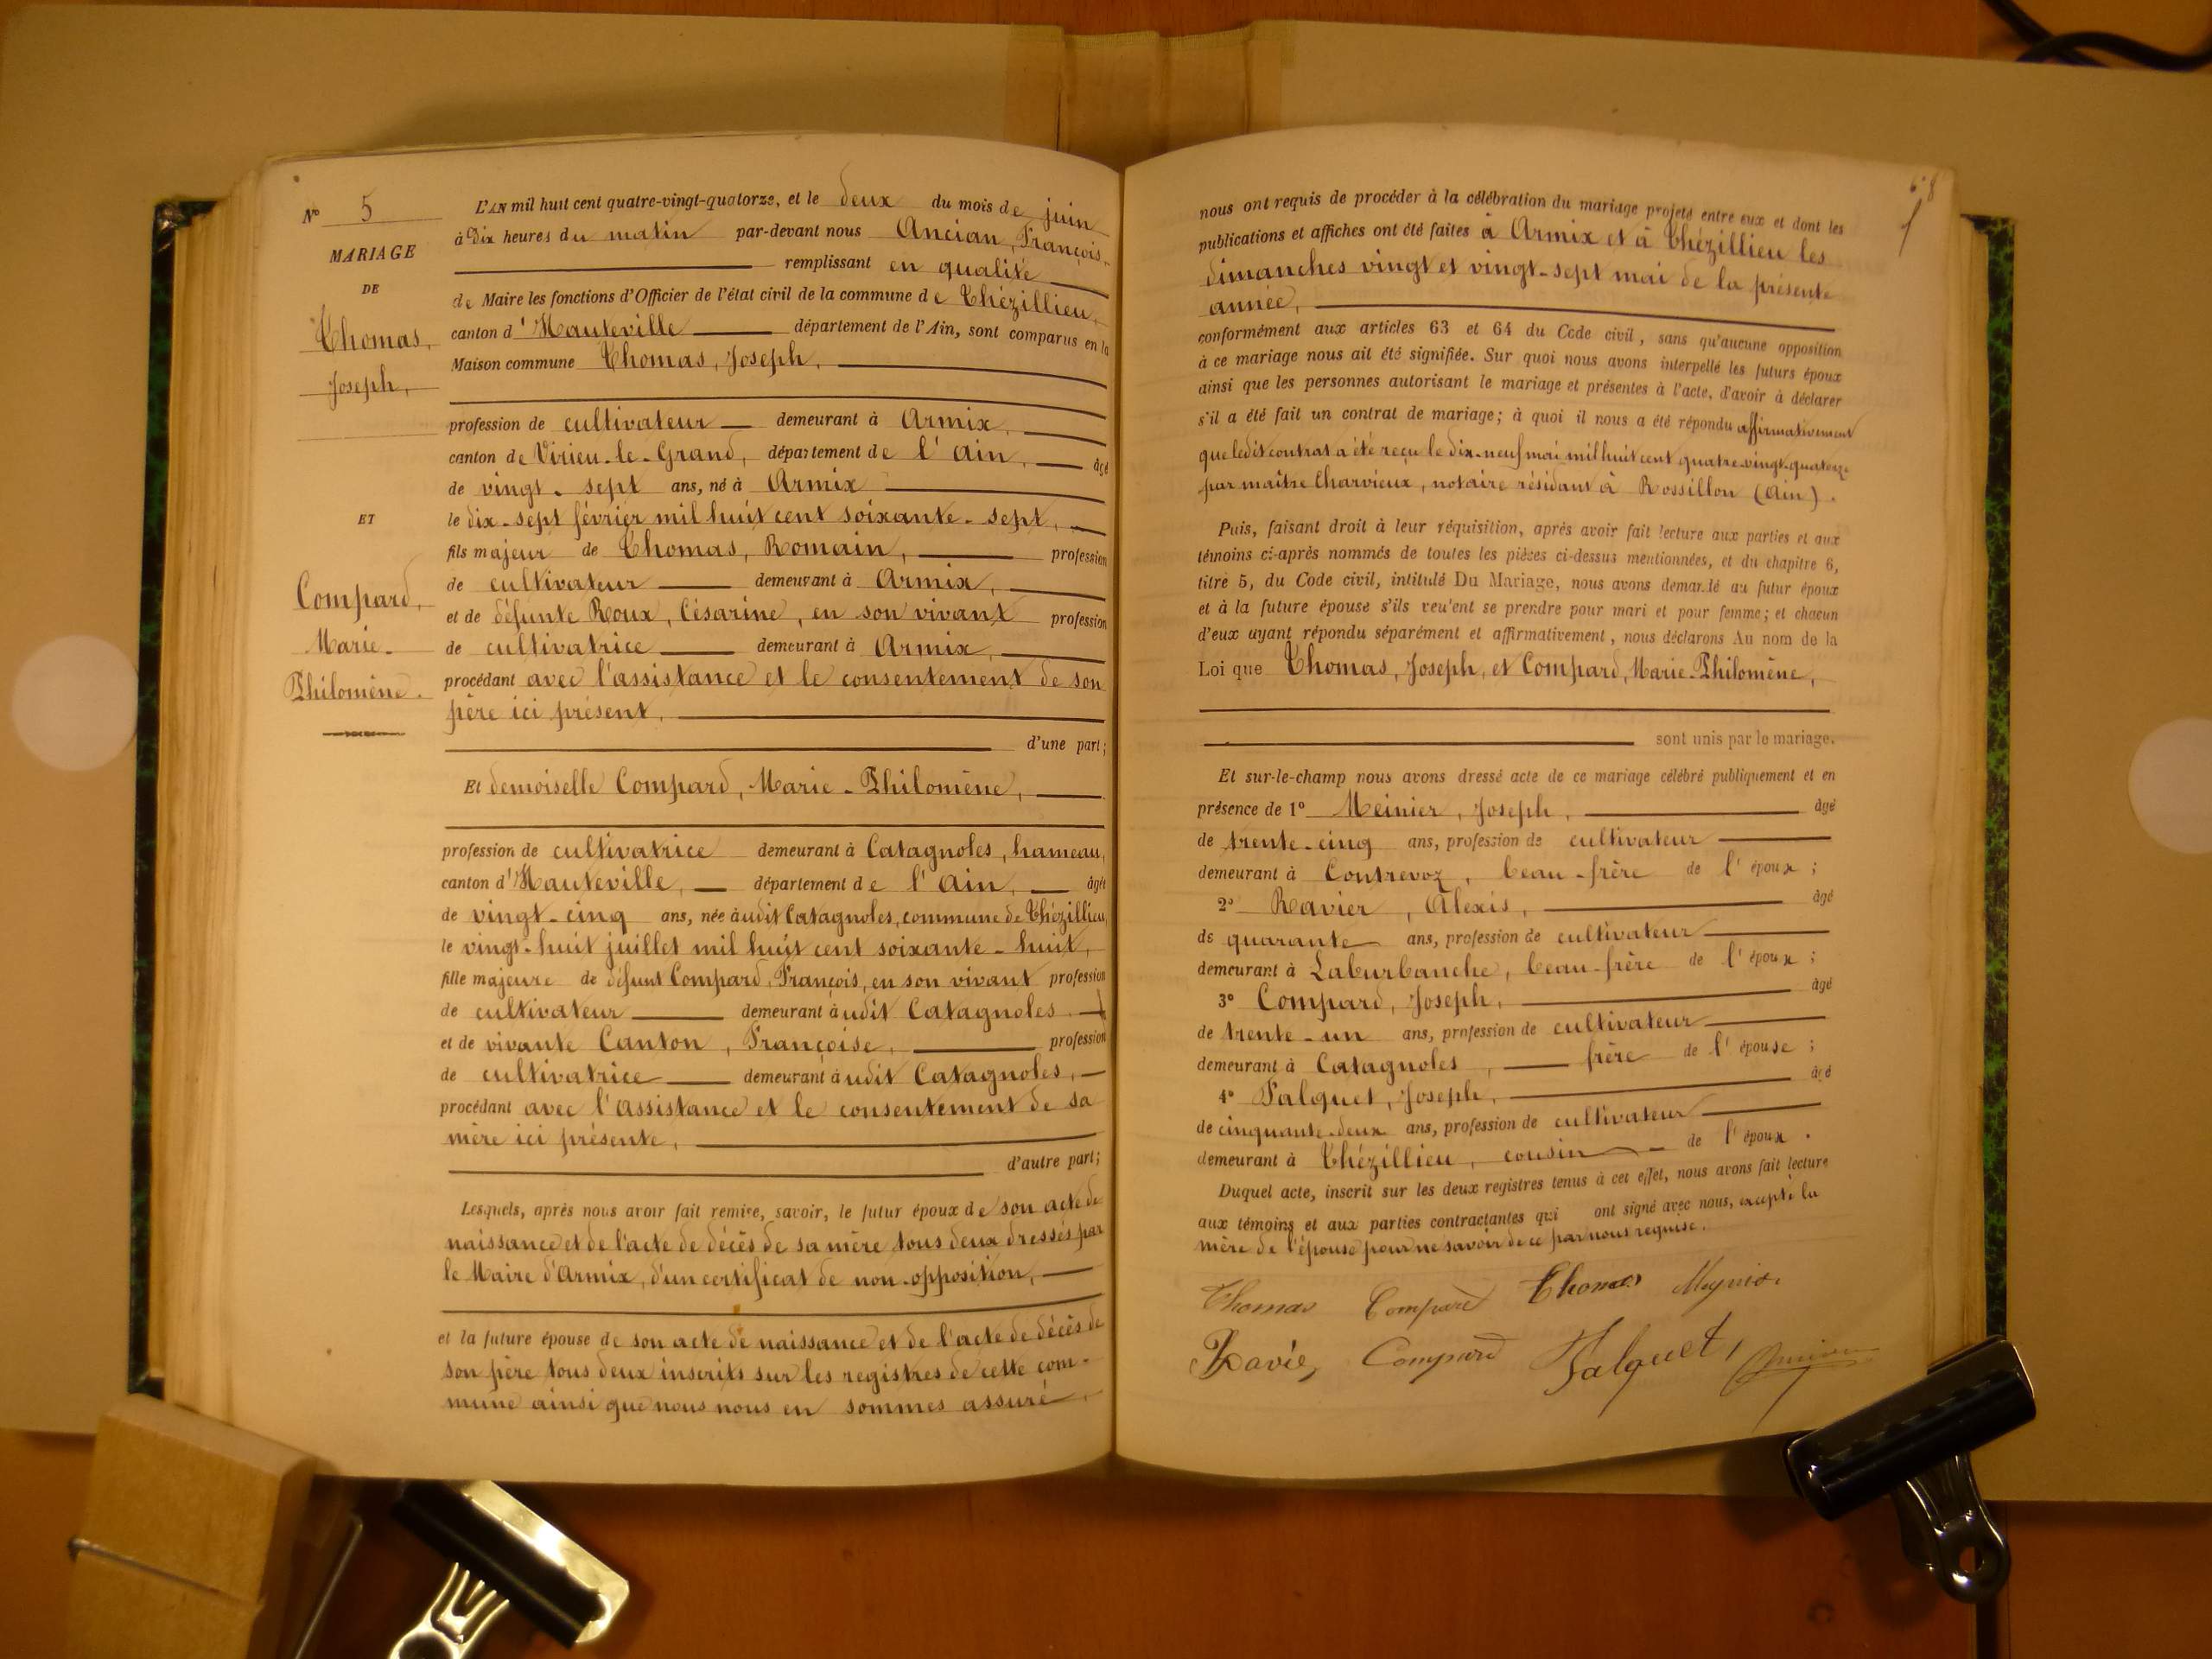 N° 5
MARIAGE
DE
Thomas,
Joseph,
ET
Compard,
Marie-
Philomène.
L'AN mil huit cent quatre-vingt-quatorze, et le deux du mois de juin
à dix heures du matin par-devant nous Ancian, François,
remplissant en qualité
de Maire les fonctions d'Officier de l'état civil de la commune de Thézillieu,
canton d'Hauteville département de l'Ain, sont comparus en la
Maison commune Thomas, Joseph,
profession de cultivateur demeurant à Armix,
canton de Virieu-le-Grand, département de l'Ain, âgé
de vingt-sept ans, né à Armix
le dix-sept février mil huit cent soixante-sept,
fils majeur de Thomas, Romain, profession
de cultivateur demeurant à Armix,
et de défunte Roux, Césarine, en son vivant profession
de cultivatrice demeurant à Armix,
procédant avec l'assistance et le consentement de son
père ici présent,
d'une part;
Et demoiselle Compard, Marie-Philomène,
profession de cultivatrice demeurant à Catagnoles, hameau,
canton d'Hauteville, département de l'Ain, âgée
de vingt-cinq ans, née audit Catagnoles, commune de Thézillieu,
le vingt-huit juillet mil huit cent soixante-huit,
fille majeure de défunt Compard, François, en son vivant profession
de cultivateur demeurant audit Catagnoles
et de vivante Canton, Françoise, profession
de cultivatrice demeurant audit Catagnoles,
procédant avec l'assistance et le consentement de sa
mère ici présente,
d'autre part;
Lesquels, après nous avoir fait remise, savoir, le futur époux de son acte de
naissance et de l'acte de décès de sa mère tous deux dressés par
le Maire d'Armix, d'un certificat de non-opposition,
et la future épouse de son acte de naissance et de l'acte de décès de
son père tous deux inscrits sur les registres de cette com-
mune ainsi que nous nous en sommes assuré.
68
nous ont requis de procéder à la célébration du mariage projeté entre eux et dont les
publications et affiches ont été faites à Armix et à Thézillieu les
dimanches vingt et vingt-sept mai de la présente
année,
conformément aux articles 63 et 64 du Code civil, sans qu'aucune opposition
à ce mariage nous ait été signifiée. Sur quoi nous avons interpellé les futurs époux
ainsi que les personnes autorisant le mariage et présentes à l'acte, d'avoir à déclarer
s'il a été fait un contrat de mariage; à quoi il nous a été répondu affirmativement
que ledit contrat a été reçu le dix-neuf mai mil huit cent quatre-vingt-quatorze
par maître Charvieux, notaire résidant à Rossillon (Ain).
Puis, faisant droit à leur réquisition, après avoir fait lecture aux parties et aux
témoins ci-après nommés de toutes les pièces ci-dessus mentionnées, et du chapitre 6,
titre 5, du Code civil, intitulé Du Mariage, nous avons demandé au futur époux
et à la future épouse s'ils veulent se prendre pour mari et pour femme; et chacun
d'eux ayant répondu séparément et affirmativement, nous déclarons Au nom de la
Loi que Thomas, Joseph, et Compard, Marie-Philomène,
sont unis par le mariage.
Et sur-le-champ nous avons dressé acte de ce mariage célébré publiquement et en
présence de 1° Meinier, Joseph, âgé
de trente-cinq ans, profession de cultivateur
demeurant à Contrevoz, beau-frère de l'époux;
2° Ravier, Alexis, âgé
de quarante ans, profession de cultivateur
demeurant à Laburbanche, beau-frère de l'époux;
3° Compard, Joseph, âgé
de trente-un ans, profession de cultivateur
demeurant à Catagnoles, frère de l'épouse;
4° Falquet, Joseph, âgé
de cinquante-deux ans, profession de cultivateur
demeurant à Thézillieu, cousin de l'époux.
Duquel acte, inscrit sur les deux registres tenus à cet effet, nous avons fait lecture
aux témoins et aux parties contractantes qui ont signé avec nous, excepté la
mère de l'épouse pour ne savoir de ce par nous requise.
Thomas Compard Thomas
Ravier Compard Falquet,